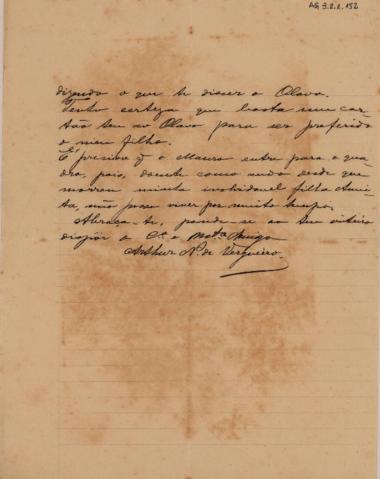 AG 3.2.2.152
dizendo o que te disser o Olavo.
Tenho certeza que basta um car-
tão teu ao Olavo para ser preferido
o meu filho.
É preciso q o Mauro entre para o qua-
dro, pois, doente como ando desde que
morreu minha inolvidavel filha Anni-
ta, não posso viver por muito tempo.
Abraça-te, pondo-se ao teu inteiro
dispôr o Cº e mtº Amigo
Arthur N. de Vergueiro.